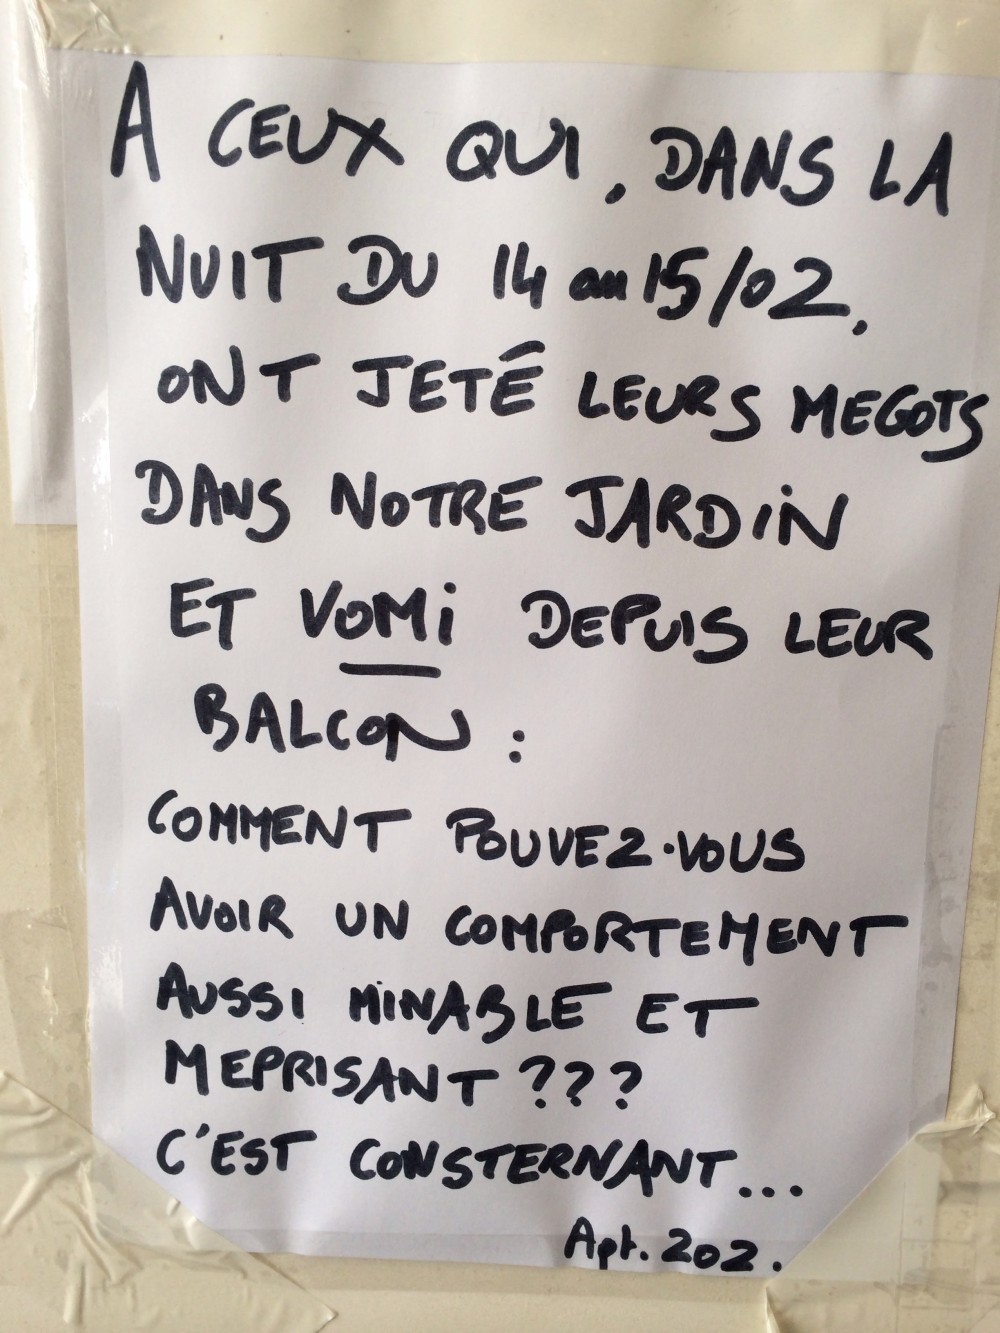 A CEUX QUI, DANS LA
NUIT DU 14 au 15/02,
ONT JETÉ LEURS MEGOTS
DANS NOTRE JARDIN
ET VOMI DEPUIS LEUR
BALCON :
COMMENT POUVEZ-VOUS
AVOIR UN COMPORTEMENT
AUSSI MINABLE ET
MEPRISANT ???
C'EST CONSTERNANT...
Apt. 202.